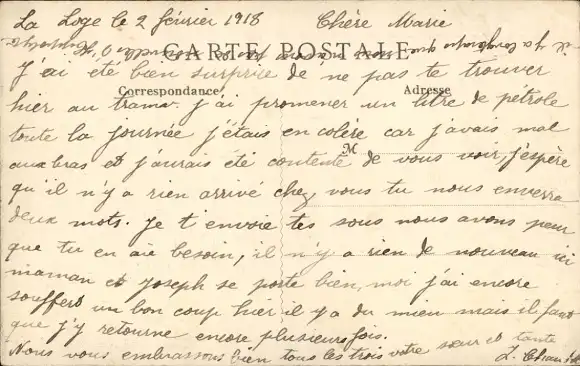 La Loge le 2 février 1918 Chère Marie
CARTE POSTALE
J'ai été bien surprise de ne pas te trouver
Correspondance Adresse
hier au tram. j'ai promener un litre de pétrole
toute la journée j'étais en colère car j'avais mal
M
aux bras et j'aurais été contente de vous voir, j'espère
qu'il n'y a rien arrivé chez vous tu nous enverra
deux mots. Je t'envoie tes sous nous avons peur
que tu en aie besoin, il n'y a rien de nouveau ici
maman et Joseph se porte bien, moi j'ai encore
souffert un bon coup hier il y a du mieu mais il faut
que j'y retourne encore plusieurs fois.
Nous vous embrassons bien tous les trois votre sœur et tante
L.